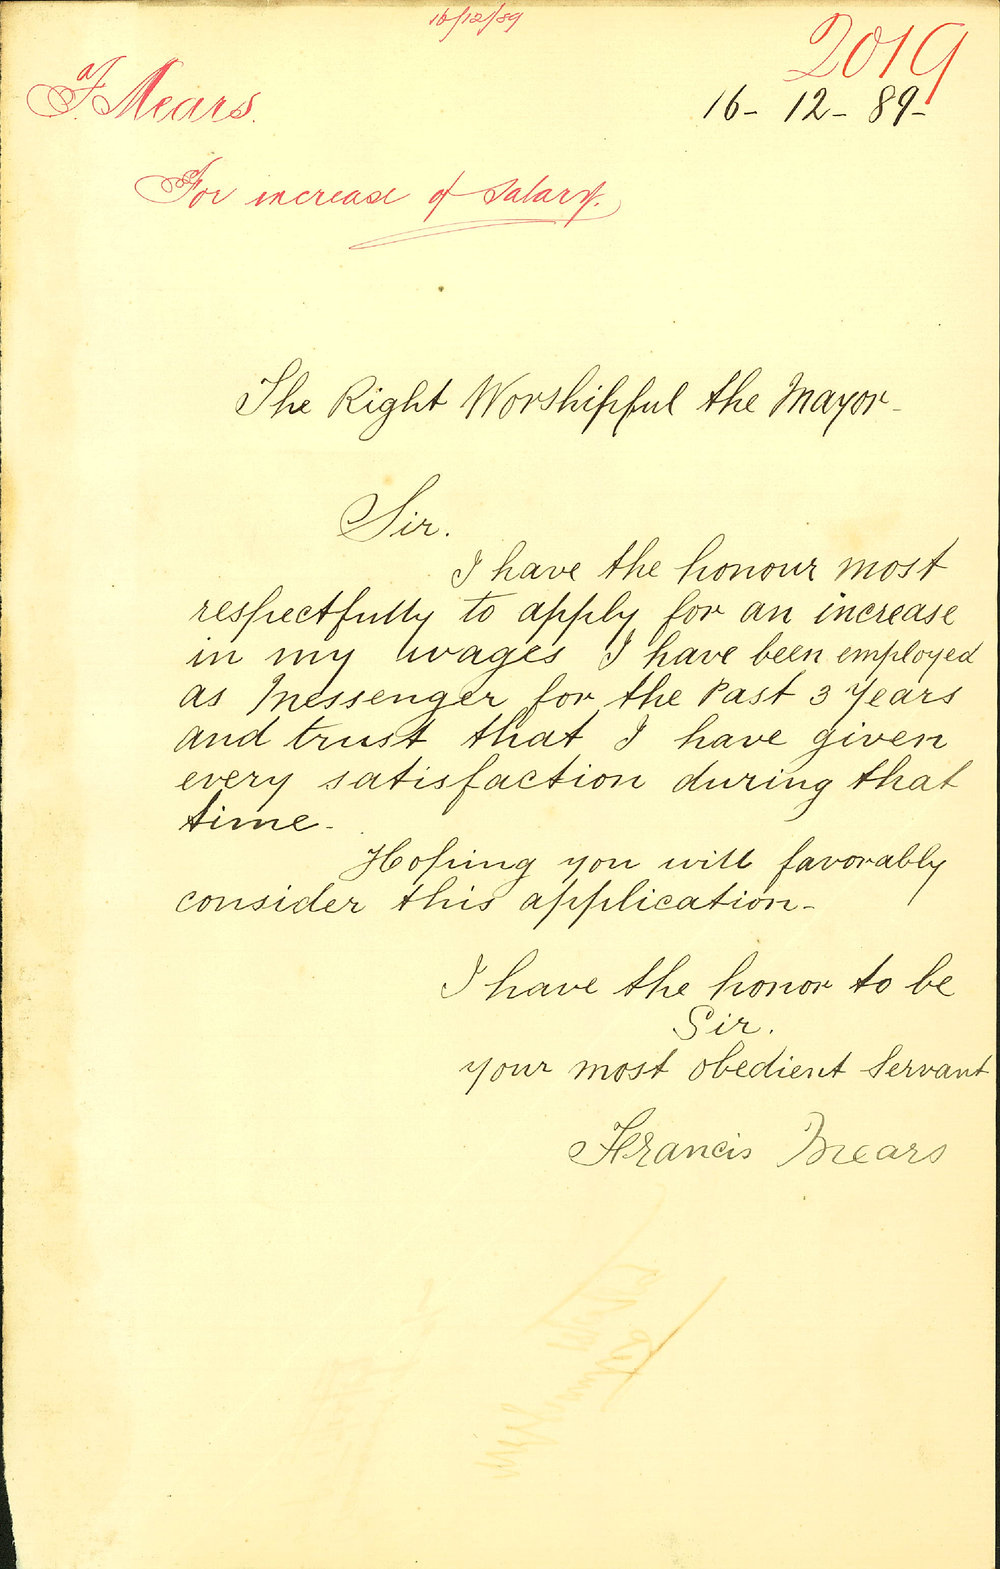 16/12/89
2019
F. Mears.
16- 12- 89-
For increase of Salary.
The Right Worshipful the Mayor-
Sir.
I have the honour most
respectfully to apply for an increase
in my wages I have been employed
as Messenger for the Past 3 Years
and trust that I have given
every satisfaction during that
time-
Hoping you will favorably
consider this application-
I have the honor to be
Sir.
your most obedient Servant
Francis Mears